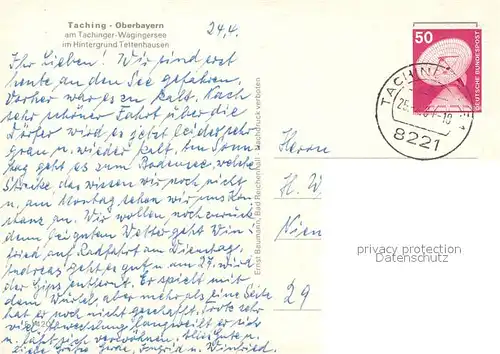 Taching - Oberbayern
am Tachinger-Wagingersee
im Hintergrund Tettenhausen
24.4.
Ihr Lieben! Wir sind erst
heute an den See gefahren,
vorher war es zu kalt. Nach
sehr schöner Fahrt über die
Dörfer wird es jetzt leider sehr
grau u. wieder kalt. Am Sonn
tag geht es zum Bodensee, welche
Strecke, das wissen wir noch nicht
u. am Montag sehen wir uns Kon
stanz an. Wir wollen noch zurück
denn bei gutem Wetter geht Win
fried auf Radfahrt am Dienstag.
Andreas geht es gut u. am 27. wird
der Gips entfernt. Er spielt mit
dem Würfel, aber mehr als eine Seite
hat er noch nicht geschafft. Trotz sehr
viel Abwechslung langweilt er sich
u. läßt sich verwöhnen. Alles Gute u.
liebe Grüße Ingrid u. Winfried
Ernst Baumann, Bad Reichenhall - Nachdruck verboten
50
DEUTSCHE BUNDESPOST
TACHING
8221
Herrn
H. W
Nien
29
privacy protection
Datenschutz